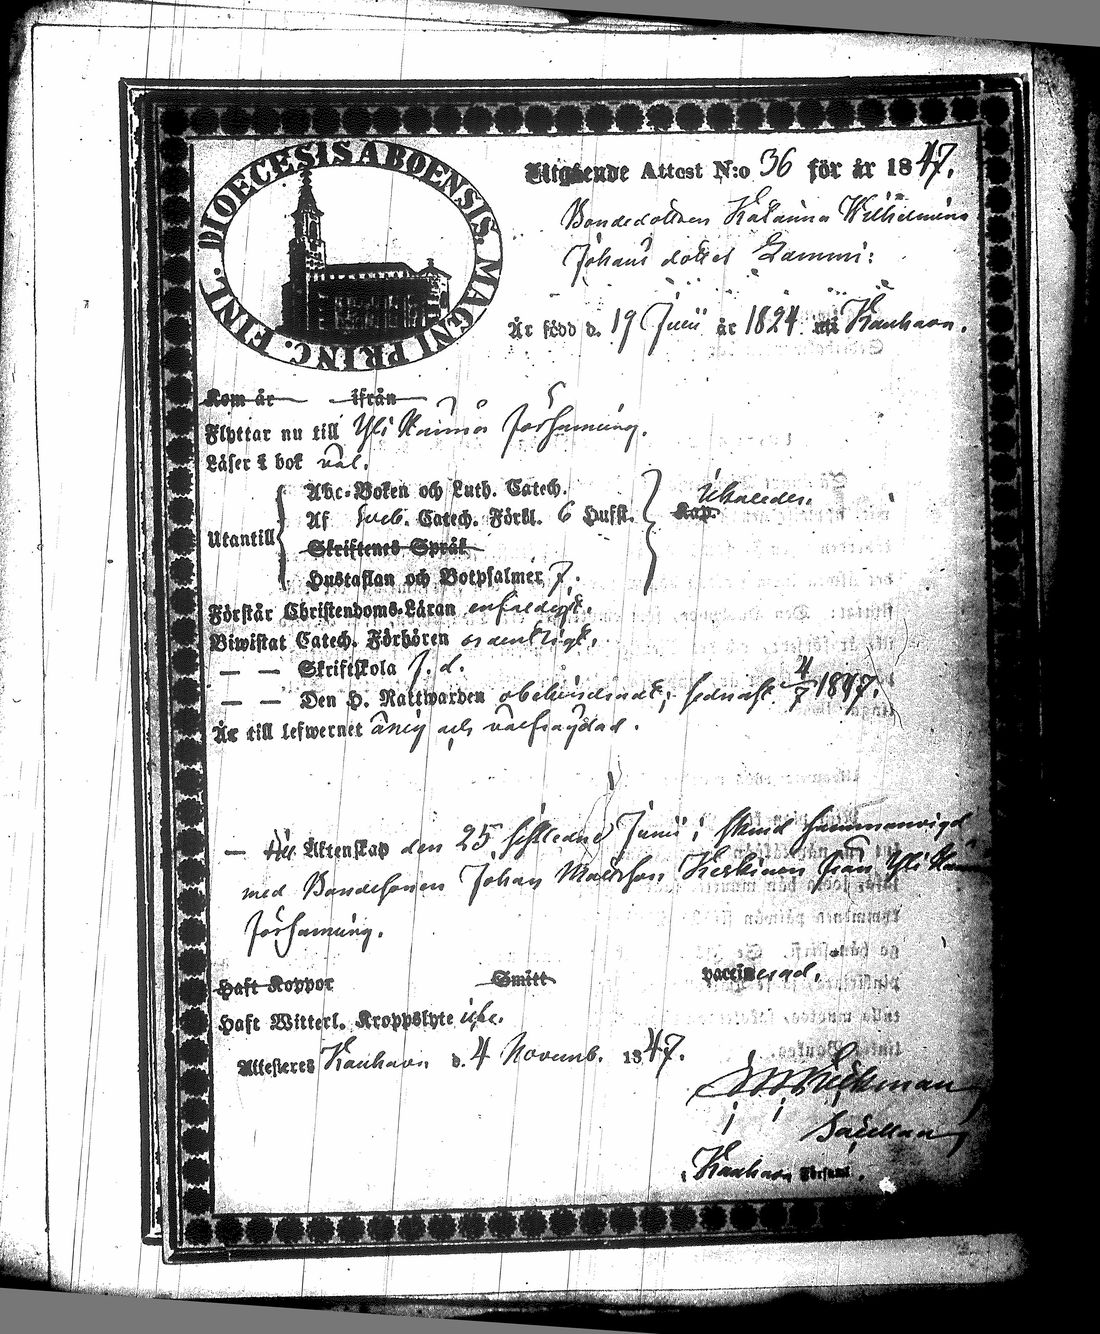 DIOECESIS ABOENSIS. MAGNI PRINC. FINL.
Utgående Attest N:o 36 för år 1847.
Bondedottren Katarina Wilhelmina
Johans dotter Lammi:
Är född d. 19 Junii år 1824 uti Kauhava.
Kom år ifrån
Flyttar nu till Yli Kannus Församling.
Läser i bok väl.
Abc-Boken och Luth. Catech.
Af Sveb. Catech. Förkl. 6 Hufst.
Utantill
Skriftenes Språk
Hustaflan och Botpsalmer 7.
Kap.
Förstår Christendoms-Läran enfaldigt.
Biwistat Catech. Förhören ordentligt.
— — Skriftskola J. d.
— — Den H. Nattwarden obehindradt, sednast 4/7 1847.
Är till lefwernet ärlig och välfrägdad.
— Äktenskap den 25 sistledne Junii, blivit sammanvigd
med Bondesonen Johan Mattsson Keskinen från Yli Kannus
Församling.
Haft Koppor Smitt vaccinerad.
Haft Witterl. Kroppslyte icke.
Attesteras Kauhava d. 4 Novemb. 1847.
Kauhava Församl.